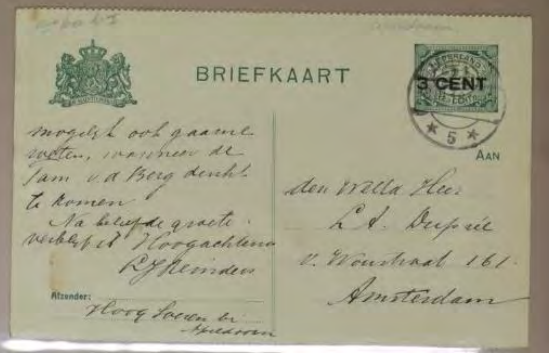 BRIEFKAART
3 CENT
5
AAN
mogelijk ook gaarne
weten, wanneer de
fam v.d Berg denkt
te komen
Na beleefde groete
verblijf ik Hoogachtend
Afzender:
Hoog Soeren bij
Apeldoorn
den Weled Heer
L.A. Dupré
v. Woustraat 161.
Amsterdam